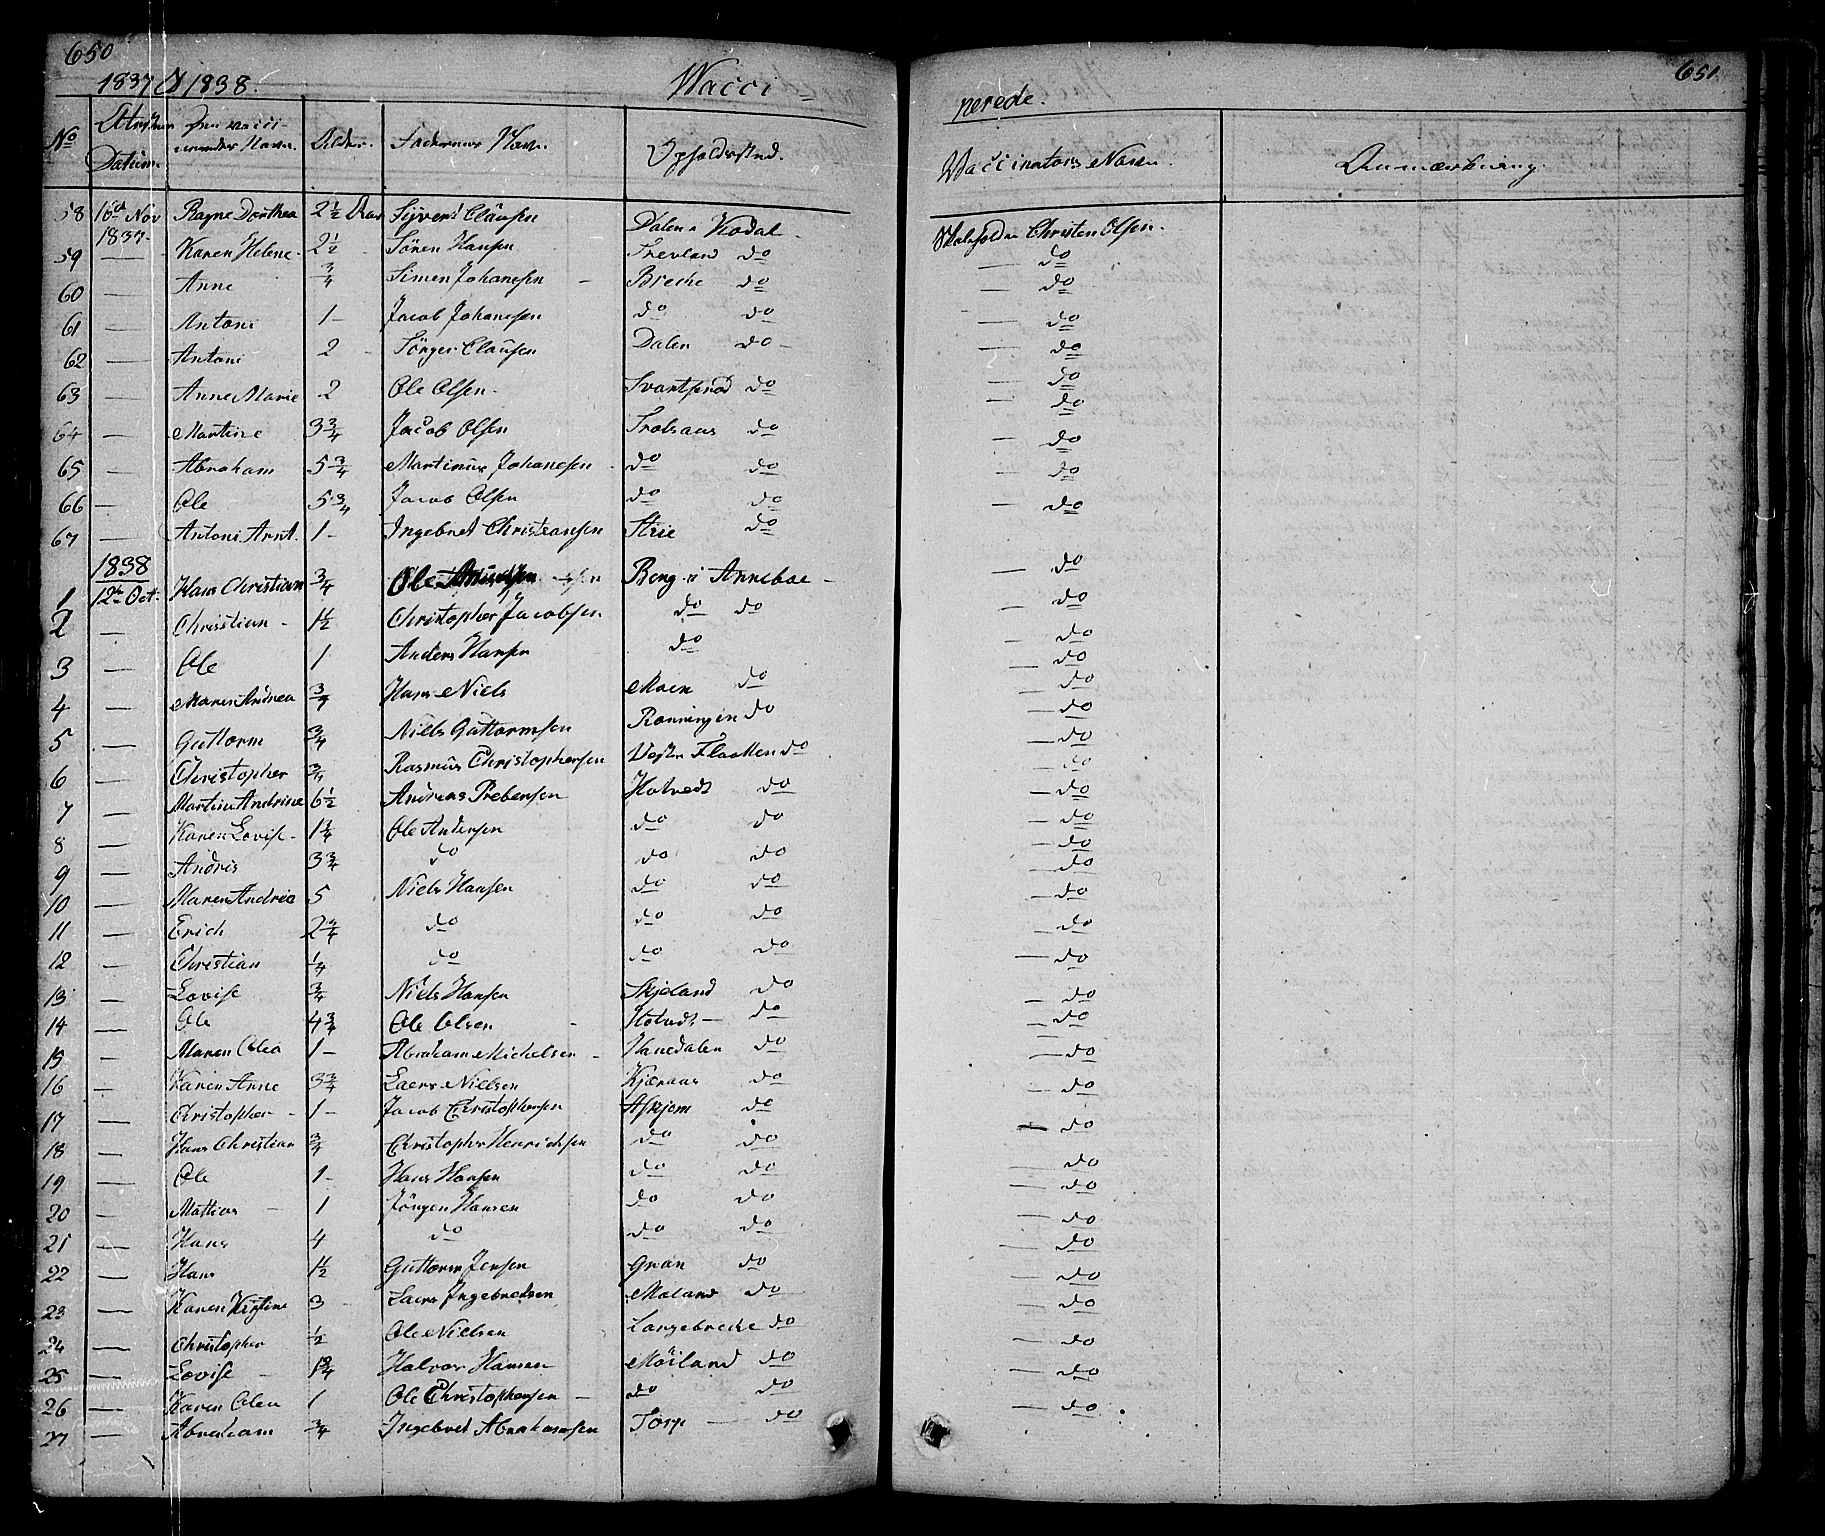 650
1837 & 1838.
Wacci-
No Datum. Alder. Faderens Navn. Opholdsstad.
58 16de Nov 1837. Ragne Dorthea 2 1/2 Aar Syvert Clausen Dalen i Kodal -
59 — Karen Helene - 2 1/2 Sören Hansen Trevland do
60 — Anne 3/4 Simen Johanesen - Breche do
61 — Antoni 1 - Jacob Johanesen do do
62 — Antoni 2 Sörger Clausen Dalen do -
63 — Anne Marie 2 Ole Olsen - Svartsrod do
64 — Martine 3 3/4 Jacob Olsen Trolsaas do
65 — Abraham 5 3/4 Martinus Johanesen - do do
66 — Ole 5 3/4 Jacob Olsen do do
67 — Antoni Arnt. 1 - Ingebret Christiansen Strie do
1838
1 12te Oct. Hans Christian 3/4 Ole Berg i Anneboe -
2 — Christian - 1 1/2 Christopher Jacobsen do do
3 — Ole 1 Anders Hansen do
4 — Maren Andrea 3/4 Hans Niels Moen do
5 — Guttorm 3/4 Niels Guttormsen Ronningen do
6 — Christopher 3/4 Rasmus Christophersen Vester Flaatten do
7 — Martin Andrine 6 1/2 Andreas Prebensen Hotvedt do
8 — Karen Lovise - 1 3/4 Ole Andersen do do
9 — Andris 3 3/4 do do do
10 — Maren Andrea 5 Niels Hansen do do
11 — Erich 2 3/4 do do do
12 — Christian 1/4 do do do
13 — Lovise 3/4 Niels Hansen Skjeland do
14 — Ole 4 3/4 Ole Olsen - Hotvedt - do
15 — Maren Olea 1 - Abraham Michelsen - Hanedalen do
16 — Karen Anne 3 3/4 Laers Nielsen Kjæraas do
17 — Christopher - 1 - Jacob Christophersen Askjem do
18 — Hans Christian 3/4 Christopher Henrichsen do do
19 — Ole 1 - Hans Hansen do do
20 — Mathias - 1 Jörgen Hansen do do
21 — Hans 4 do do do
22 — Hans 1 1/2 Guttorm Jensen Gran do
23 — Karen Kistine 3 - Laers Ingebretsen Moland do
24 — Christopher 1/2 Ole Nielsen Langebreche do
25 — Lovise - 1 3/4 Halvor Hansen Möiland do
26 — Karen Olea 1 Ole Christophersen - do do
27 — Abraham 3/4 Ingebret Abrahamsen Torp — do
651
nerede.
Vaccinatores Navn. Anmærkning.
Christen Olsen.
— do
— do
— do
— do
— do
— do
— do
— do
— do
— do
— do
— do
— do
— do
— do
— do
— do
— do
— do
— do
— do
— do
— do
— do
— do
— do
— do
— do
— do
— do
— do
— do
— do
— do
— do
— do
— do